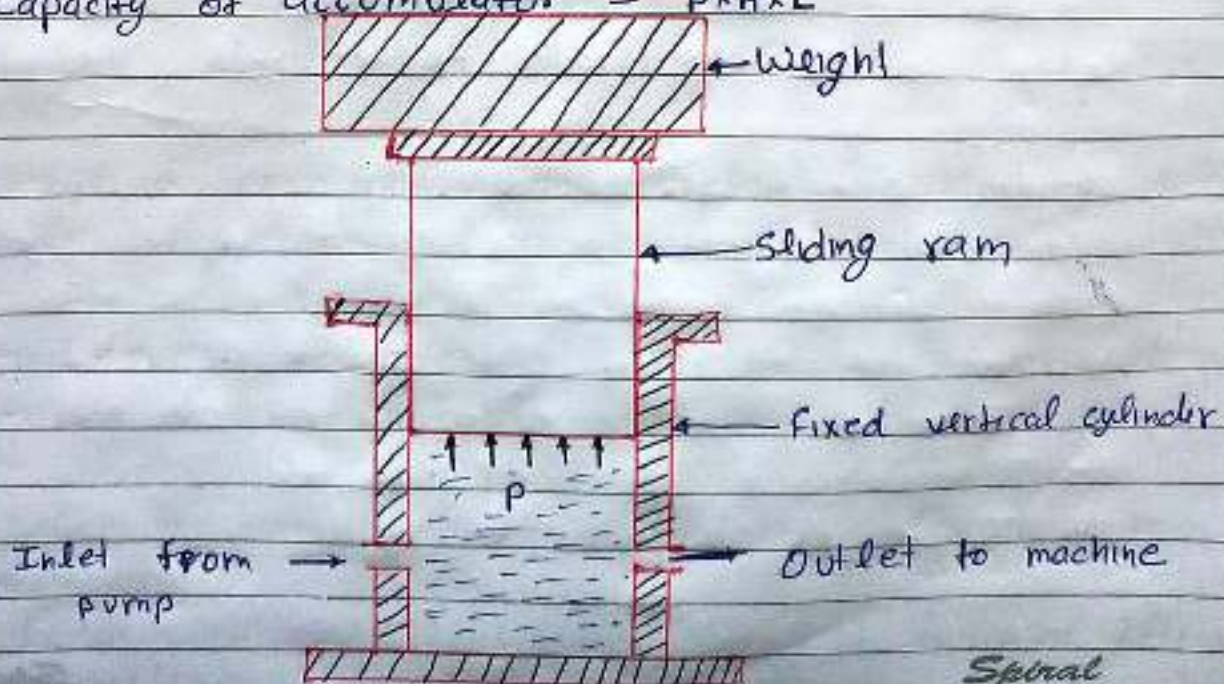 Capacity of accumulator = P×A×L
Weight
Sliding ram
Fixed vertical cylinder
P
Inlet from
pump
Outlet to machine
Spiral